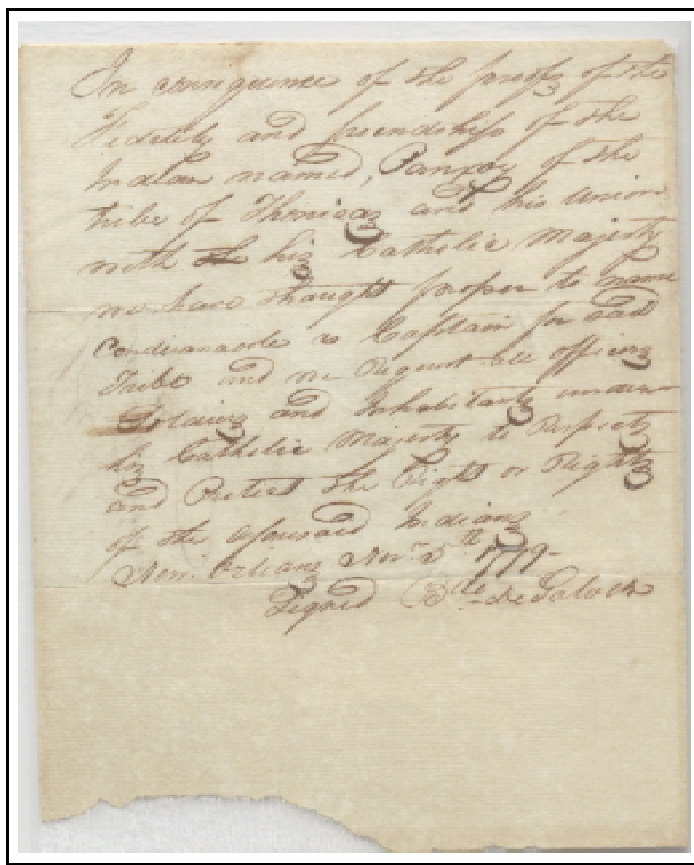 In consequence of the proofs of the
Fidelity and freendship of the
Indian named, Panroy of the
tribe of Thonicas and his union
with the his Catholic Majesty
we have thought proper to name
as Captain for said
Tribe and we Request all officers
Soldiers and Inhabitants under
his Catholic Majesty to Respect
and Protect the Right or Rights
of the afouraid Indians
New Orleans Nov. 5th 1779-
Signed B. de Galvez